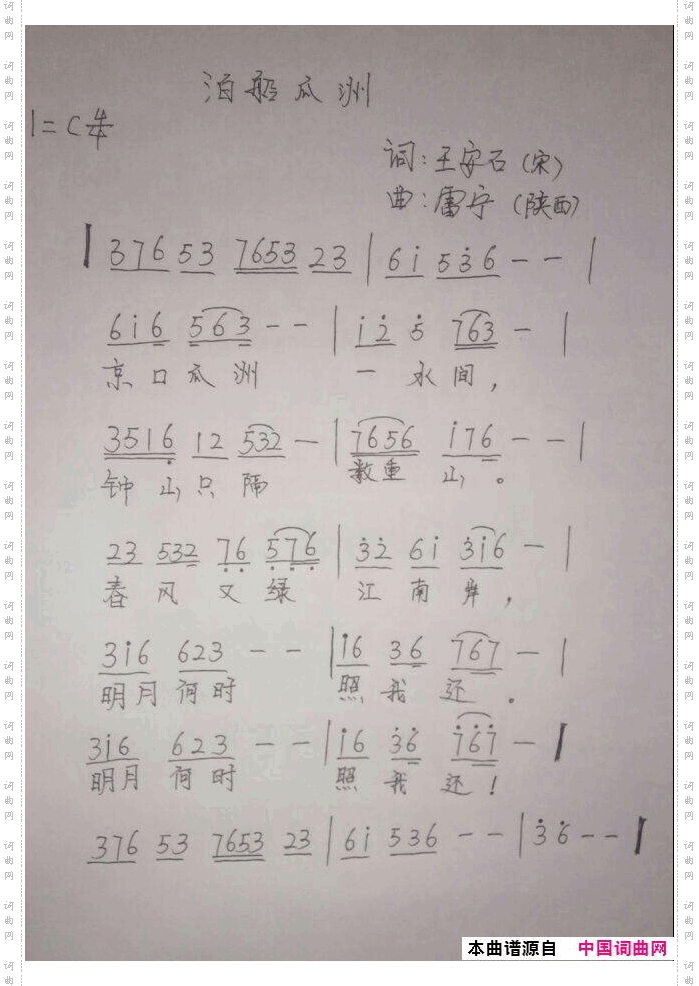 泊船瓜洲
1=C 4/4
词:王安石(宋)
曲:雷宁(陕西)
376 53 7653 23 | 6i 536 - - |
6i6 563 - - | i2 5 763 - |
京口瓜洲 一水间,
3516 12 532 - | 7656 i76 - - |
钟山只隔 数重山。
23 532 76 576 | 32 6i 3i6 - |
春风又绿 江南岸,
3i6 623 - - | i6 36 767 - |
明月何时 照我还.
3i6 623 - - | i6 36 767 - |
明月何时 照我还!
376 53 7653 23 | 6i 536 - - | 36 - - |
本曲谱源自 中国词曲网